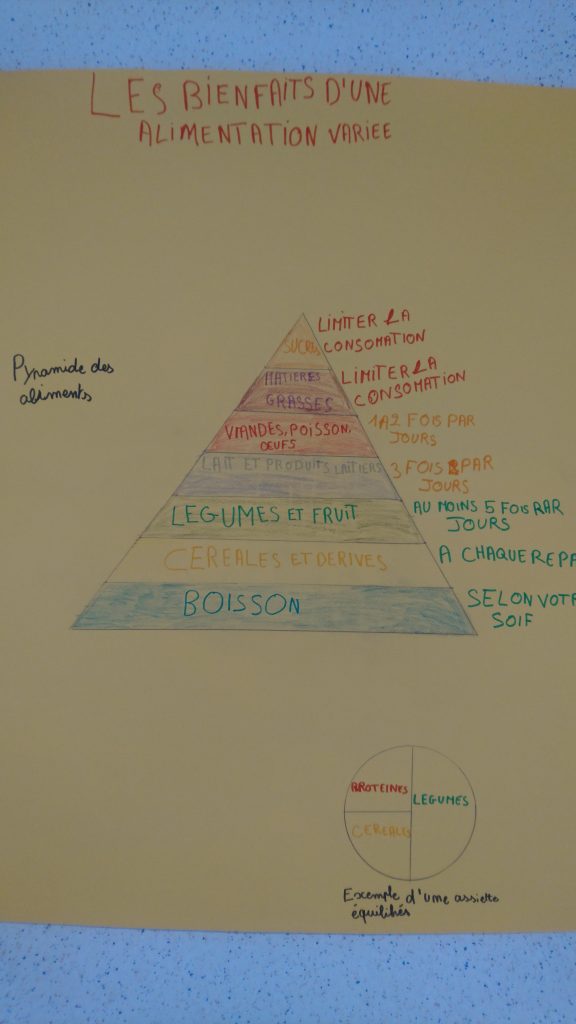 LES BIENFAITS D'UNE
ALIMENTATION VARIEE
Pyramide des
aliments
SUCRES
LIMITER LA
CONSOMATION
MATIERES
GRASSES
LIMITER LA
CONSOMATION
VIANDES, POISSON,
OEUFS
1 A 2 FOIS PAR
JOURS
LAIT ET PRODUITS LAITIERS
3 FOIS PAR
JOURS
LEGUMES ET FRUIT
AU MOINS 5 FOIS PAR
JOURS
CEREALES ET DERIVES
A CHAQUE REPA
BOISSON
SELON VOT
SOIF
PROTEINES
LEGUMES
CEREALES
Exemple d'une assiette
équilibrés